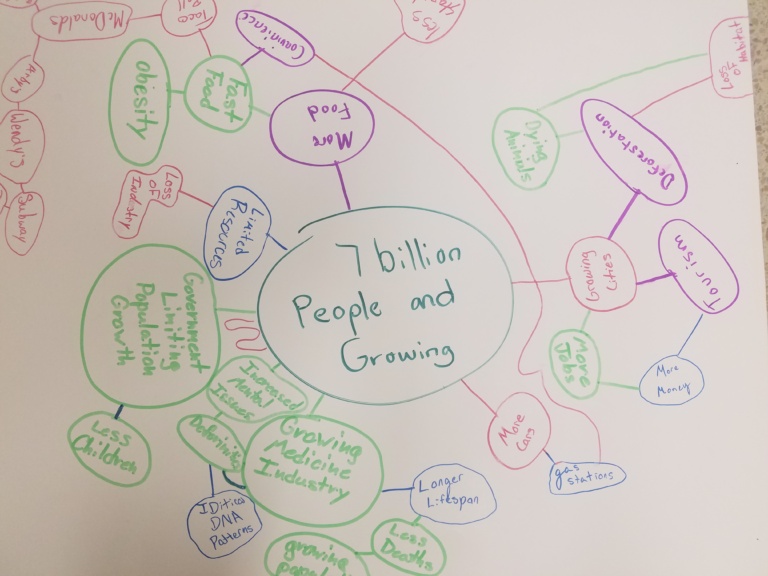 7 billion
People and
Growing
More
Food
Fast
Food
obesity
McDonalds
Taco
Bell
Arby's
Wendy's
Subway
Less
Limited
Resources
Loss
OF
Industry
Government
Limiting
Population
Growth
Less
Children
Increased
Mental
Issues
Growing
Medicine
Industry
DNA
Patterns
Longer
Lifespan
Less
Deaths
growing
More
Cars
gas
stations
Growing
Cities
Deforestation
Dying
Animals
Loss
OF
Habitat
Tourism
More
Jobs
More
Money